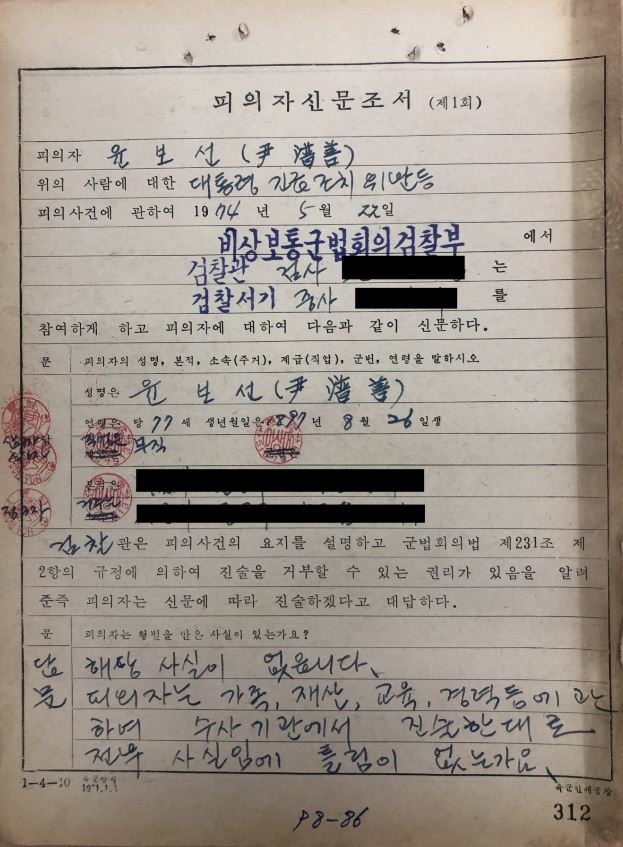 피의자신문조서 (제1회)
피의자 윤보선 (尹潽善)
위의 사람에 대한 대통령 긴급조치 위반등
피의사건에 관하여 1974년 5월 22일
비상보통군법회의검찰부 에서
검찰관 검사 는
검찰서기 중사 를
참여하게 하고 피의자에 대하여 다음과 같이 신문하다.
문 피의자의 성명, 본적, 소속(주거), 계급(직업), 군번, 연령을 말하시오
성명은 윤보선 (尹潽善)
연령은 당 77세 생년월일은 1897년 8월 26일생
직업은 무직
본적은
주거은
검찰관은 피의사건의 요지를 설명하고 군법회의법 제231조 제
2항의 규정에 의하여 진술을 거부할 수 있는 권리가 있음을 알려
준즉 피의자는 신문에 따라 진술하겠다고 대답하다.
문 피의자는 형벌을 받은 사실이 있는가요?
답 해당 사실이 없읍니다.
문 피의자는 가족, 재산, 교육, 경력등에 관
하여 수사기관에서 진술한대로
전부 사실임에 틀림이 없는가요.
1-4-10 육군양식
1971.1.1
육군인쇄공창
312
P8-86